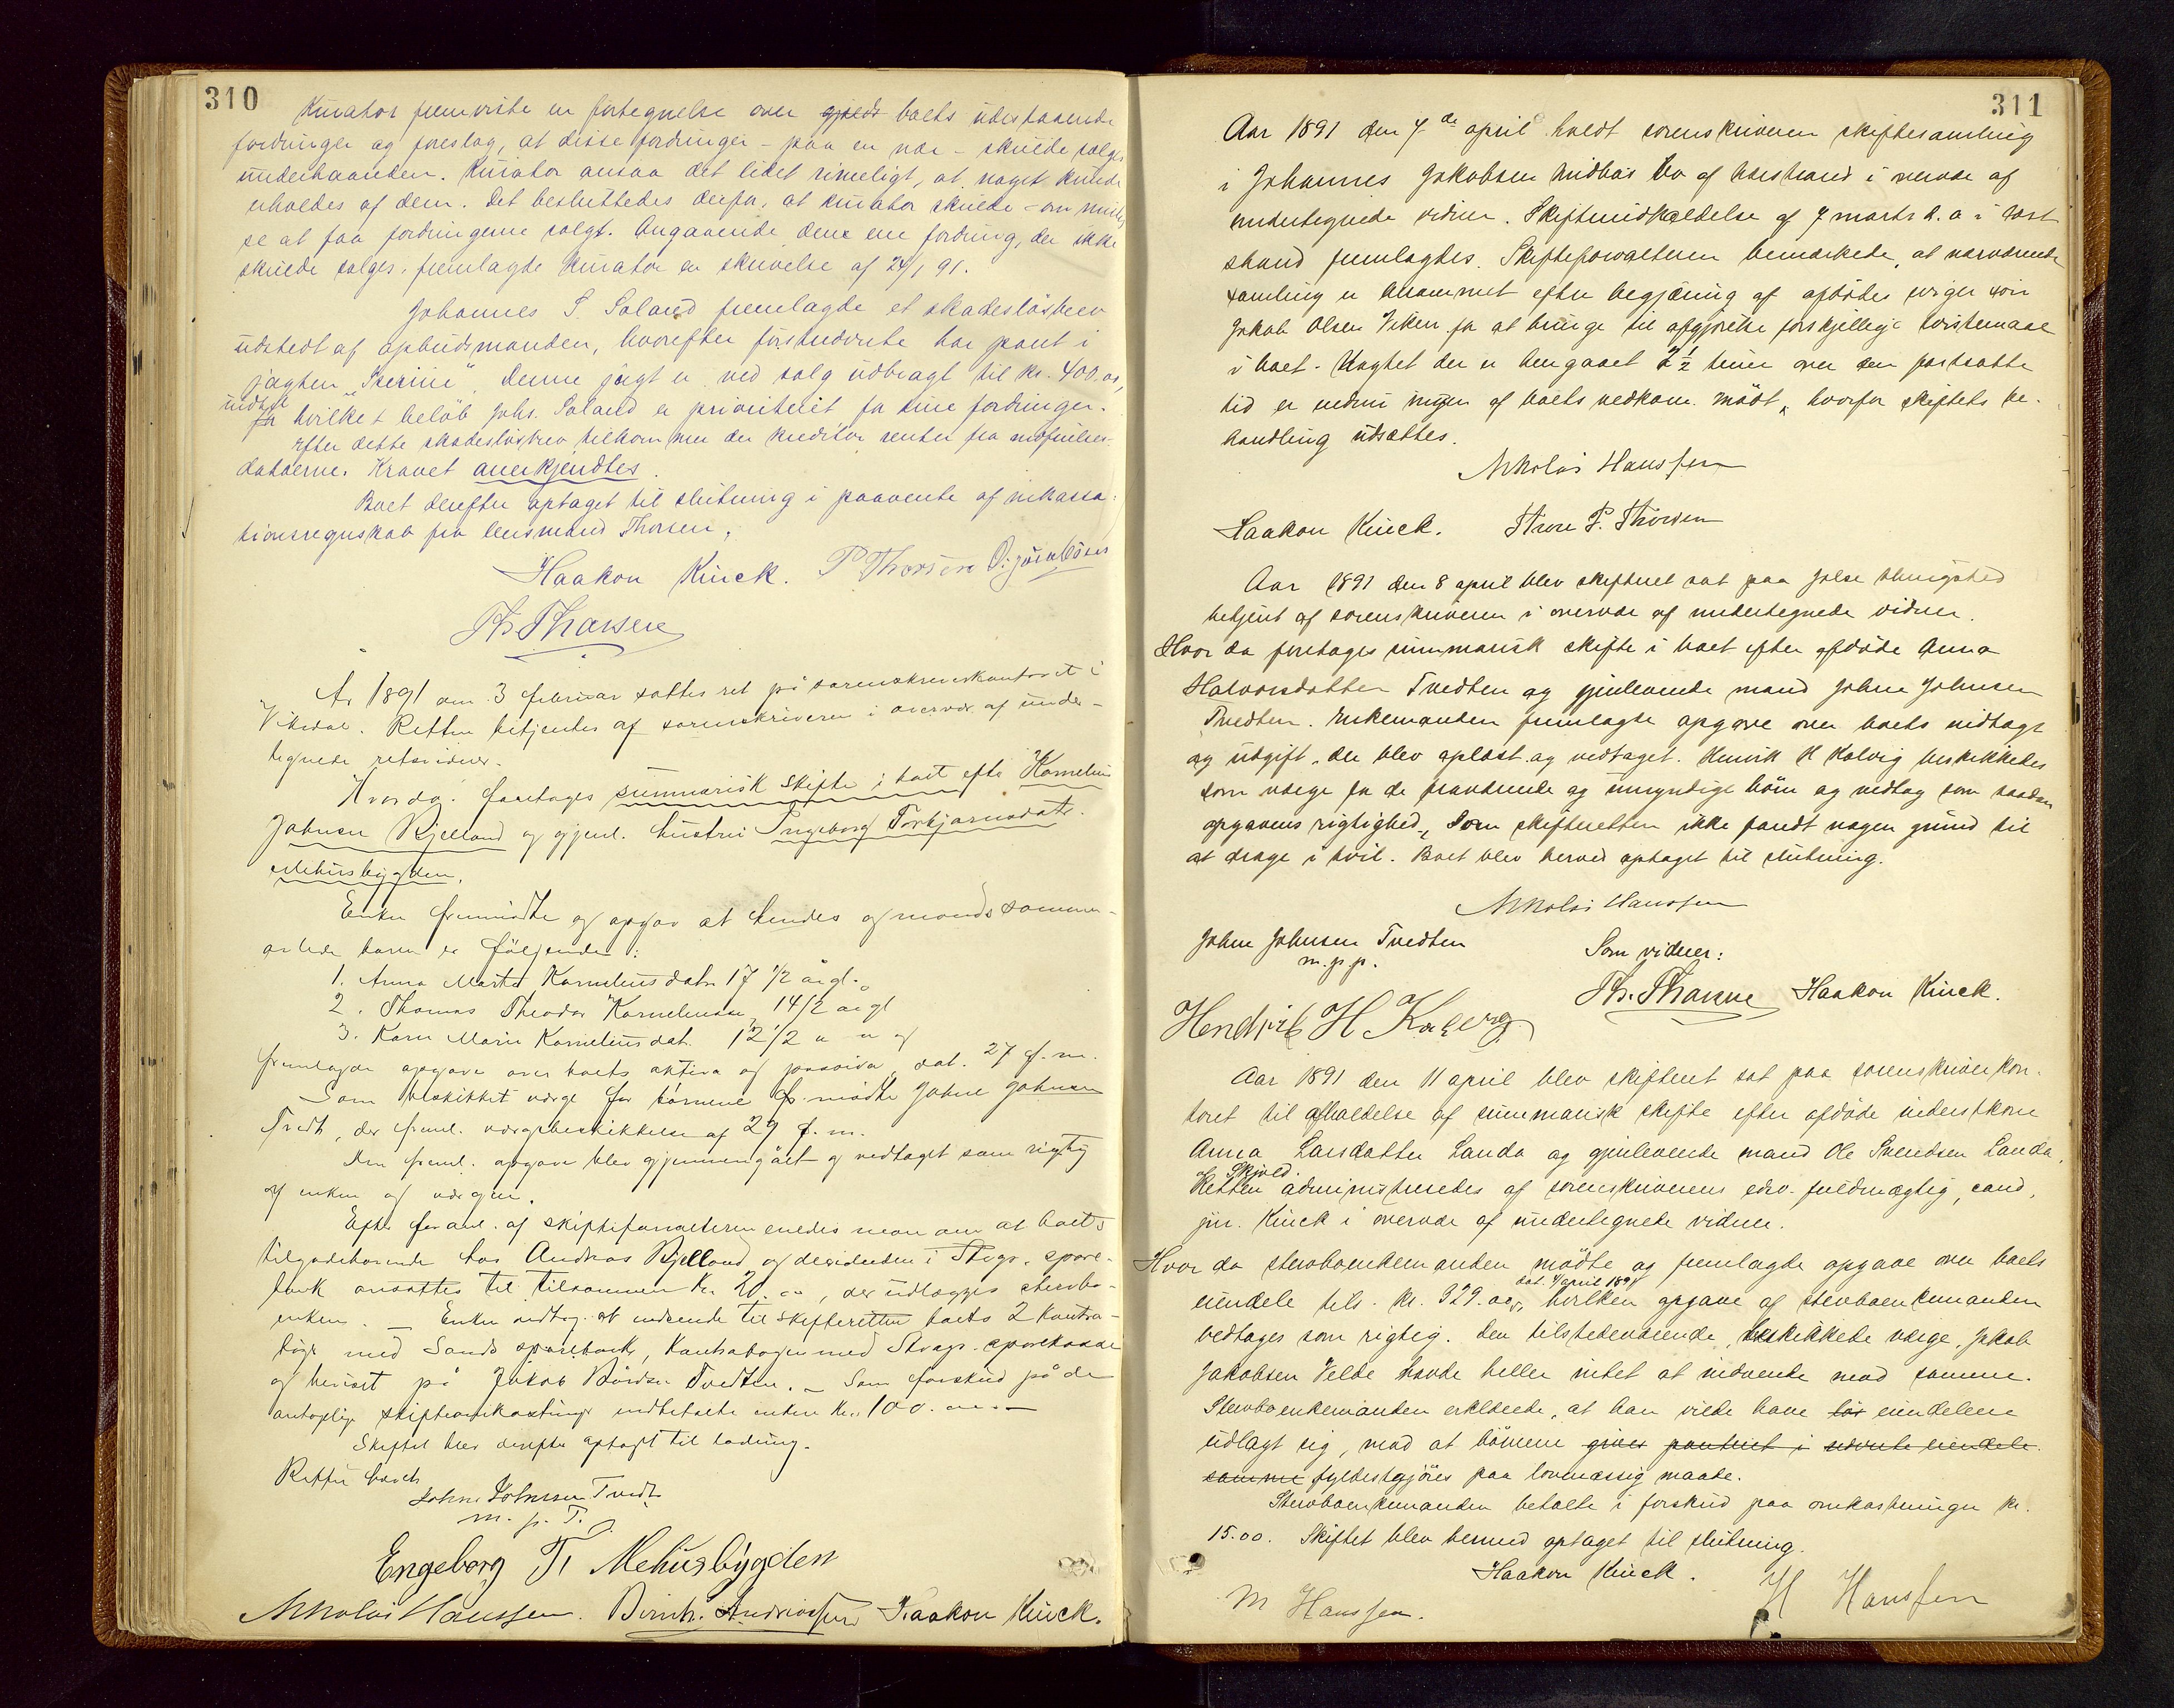 310
Kurator fremviste en fortegnelse over gjælds boets udestaaende
fordringer og foreslog, at disse fordringer - paa en nær - skulde sælges
underhaanden. Kurator ansaa det lidet rimeligt, at noget kunde
erholdes af dem. Det besluttedes derfor, at kurator skulde - om muligt
se at faa fordringerne solgt. Angaaende den ene fordring, der ikke
skulde sælges, fremlagde kurator en skrivelse af 24/1 91.
Johannes S. Soland fremlagde et skadesløsbrev
udstedt af opbudsmanden, hvorefter førstnævnte har pant i
jagten "Serine". Denne jagt er ved salg udbragt til kr. 400.00,
indtil
for hvilket beløb Johs. Soland er prioriteret for sine fordringer.
Efter dette skadesløsbrev tilkommer der kreditor renter fra
datoerne. Kravet anerkjendtes.
Boet derefter optaget til slutning i paavente af inkassa-
tionsregnskab fra lensmand Thorsen.
Haakon Kinck. P Thorsen
Th. Tharsen
År 1891 den 3 februar sattes ret på sorenskriverkontoret i
Vikedal. Retten betjentes af sorenskriveren i overvær af under-
tegnede retsvidner.
Hvorda. foretoges summarisk skifte i boet efter Kornelius
Johnsen Kjelland og gjenl. hustru Ingeborg Torbjørnsdatr.
Mehusbygden.
Enken fremmødte og opgav at hendes og mands sammen-
avlede børn er følgende:
1. Anna Marta Korneliusdatr 17 1/2 årgl.
2. Thomas Theodor Korneliussen 14 1/2 årgl
3. Karen Marie Korneliusdat. 12 1/2 " " og
fremlagde opgave over boets aktiva og passiva, dat. 27 f.m.
Som beskikket værge for børnene fr.mødte Johne Johnsen
Tvedt, der freml. værgebeskikkelse af 27 f.m.
Den freml. opgave blev gjennemgået og vedtaget som rigtig
af enken og værgen.
Efter foranl. af skifteforvalteren enedes man om at boets
tilgodehavende hos Andreas Kjelland og dividenden i Stvgr. spare-
bank ansattes til tilsammen kr. 20.00, der udlægges stervbo-
enken. _ Enken vedtog at indsende til skifteretten boets 2 kontra-
bøger med Sands sparebank, kontrabogen med Stvgr. sparekasse
og beviset på Jakob Bårdsen Tvedten. _ Som forskud på de
antagelige skifteomkostninger indbetalte enken kr. 100.00.-
Skiftet blev derefter optaget til lodning.
Retten hævet
Johne Johnsen Tvedt
m. p. P.
Engeborg T. Mehusbygden
Nikolai Hanssen. Bernh. Andreassen Haakon Kinck.
311
Aar 1891 den 7de april holdt sorenskriveren skiftesamling
i Johannes Jakobsen Midbøs bo af Skjoldastraumen i overvær af
undertegnede vidner. Skifteindkaldelse af 7 marts d.a. i
stand fremlagdes. Skifteforvalteren bemærkede, at nærværende
samling er berammet efter begjæring af afdødes svigersøn
Jakob Olsen Viken for at bringe til afgjørelse forskjellige tvistemaal
i boet. Uagtet der er hengaaet 2 1/2 time over den fastsatte
tid er endnu ingen af boets vedkom. mødt, hvorfor skiftets be-
handling udsættes.
Nikolai Hanssen
Haakon Kinck. Thore P. Thorsen
Aar 1891 den 8 april blev skifteret sat paa Jelse thingsted
betjent af sorenskriveren i overvær af undertegnede vidner.
Hvor da foretoges summarisk skifte i boet efter afdøde Anna
Halvorsdatter Tvedten og gjenlevende mand Johne Johnsen
Tvedten. Enkemanden fremlagde opgave over boets indtægt
og udgift, der blev oplæst og vedtaget. Henrik H Kolvig beskikkedes
som værge for de fraværende og umyndige børn og vedtog som saadan
opgavens rigtighed, som skifteretten ikke fandt nogen grund til
at drage i tvil. Boet blev herved optaget til slutning.
Nikolai Hanssen
Johne Johnsen Tvedten
m.p.p.
Som vidner:
Th. Tharsen Haakon Kinck.
Hendrik H Kalevig
Aar 1891 den 11 april blev skifteret sat paa sorenskriverkon-
toret til afholdelse af summarisk skifte efter afdøde inderstkone
Anna Larsdatter Landa og gjenlevende mand Ole Svendsen Landa,
Skjold.
Retten administreredes af sorenskriverens edsv. fuldmægtig, cand.
jur. Kinck i overvær af undertegnede vidner.
Hvor da stervboenkemanden mødte og fremlagde opgave over boets
dat. 4/april 1891
eiendele tils. kr. 329.00, hvilken opgave af stervboenkemanden
vedtages som rigtig. Den tilstedeværende, beskikkede værge, Jakob
Jakobsen Velde havde heller intet at indvende mod samme.
Stervboenkemanden erklærede, at han vilde have løs eiendelene
udlagt sig, mod at børnene gives panteret i nævnte eiendele
samme fyldestgjøres paa lovmæssig maade.
Stervboenkemanden betalte i forskud paa omkostninger kr.
15.00. Skiftet blev hermed optaget til slutning.
Haakon Kinck.
M Hanssen. H Hanssen